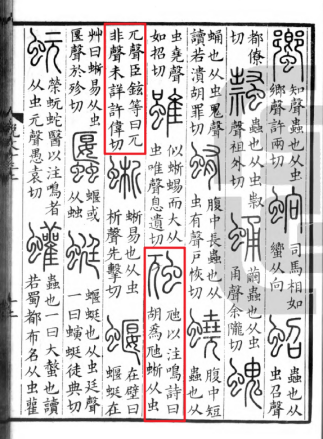 蠁 知聲蟲也从虫鄉聲許兩切 蚼 司馬相如蠁从向 蛁 蟲也从虫召聲
都僚切 𧒒 蟲也从虫㕡聲祖外切 蛹 繭蟲也从虫甬聲余隴切 螝
蛹也从虫鬼聲讀若潰胡罪切 蛕 腹中長蟲也从虫有聲戶恢切 蟯 腹中短蟲也从
虫堯聲如招切 雖 似蜥蜴而大从虫唯聲息遺切 虺 虺以注鳴詩曰胡爲虺蜥从虫
兀聲臣鉉等曰兀非聲未詳許偉切 蜥 蜥易也从虫析聲先擊切 蝘 在壁曰蝘蜓在
艸曰蜥易从虫匽聲於殄切 𧖃 蝘或从䖵 蜓 蝘蜓也从虫廷聲一曰螾蜓徒典切
蚖 榮蚖蛇醫以注鳴者从虫元聲愚袁切 蠸 蟲也一曰大螫也讀若蜀都布名从虫雚